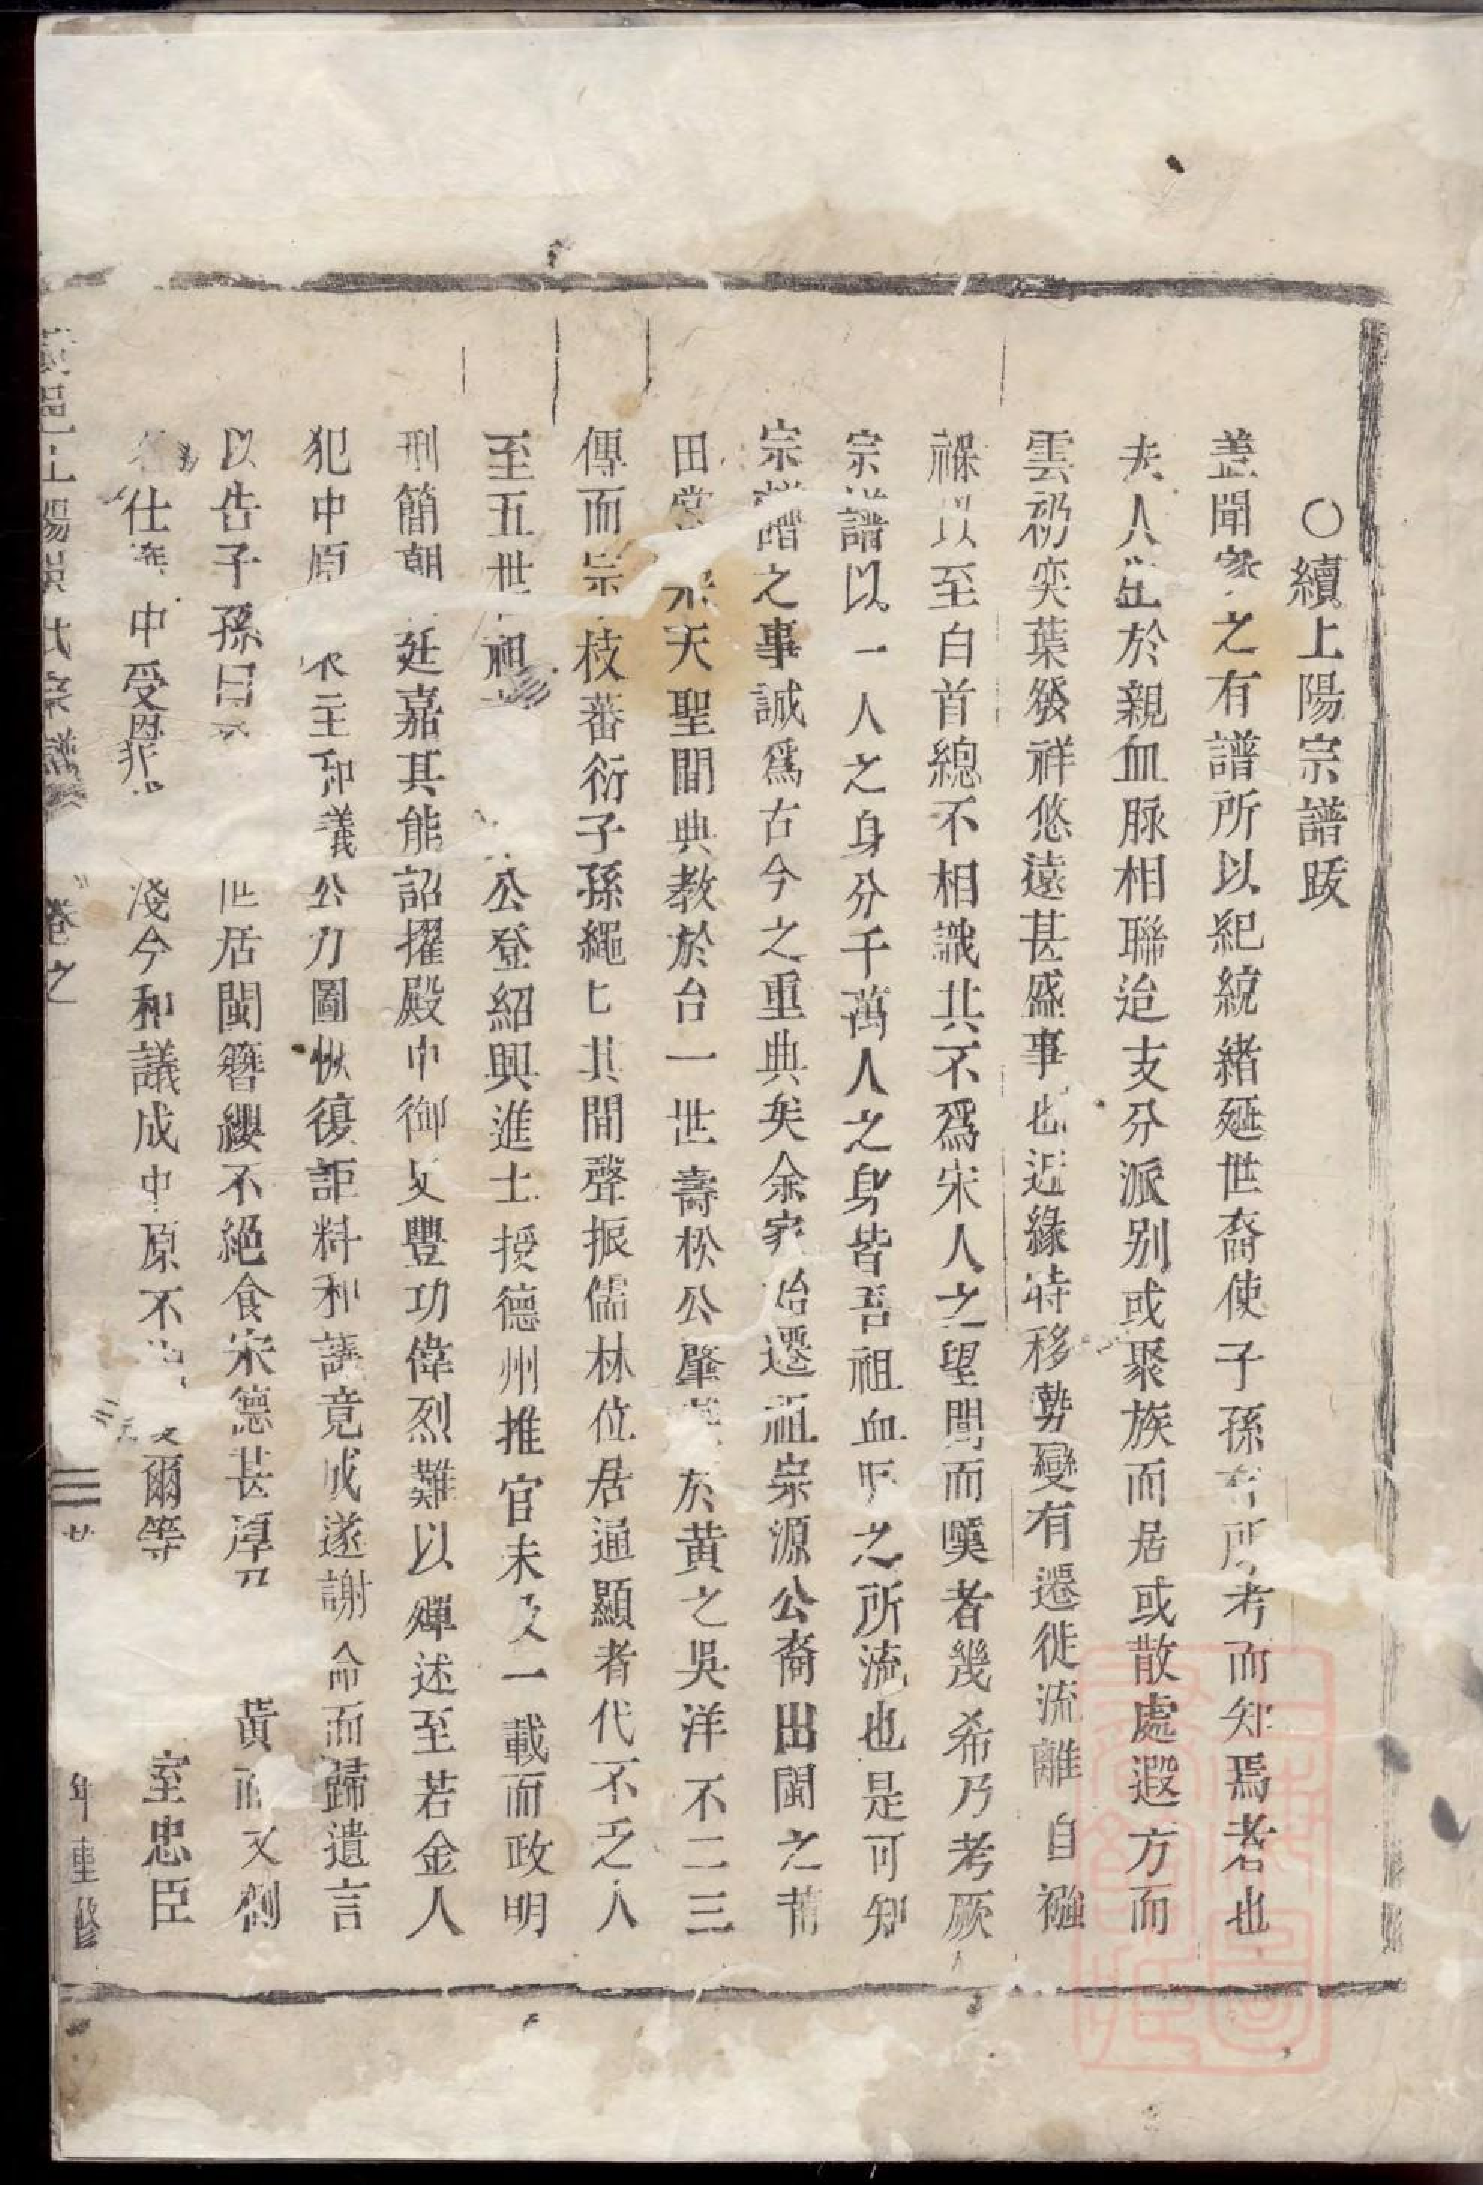 ○續上陽宗譜跋
蓋聞家之有譜所以紀統緒延世裔使子孫有所考而知焉者也
夫人生於親血脉相聯迨支分派别或聚族而居或散處遐方而
雲礽奕葉發祥悠遠甚盛事也近緣時移勢變有遷徙流離自襁
褓以至白首總不相識其不爲宋人之望閭而嘆者幾希乃考厥
宗譜以一人之身分千萬人之身皆吾祖血脉之所流也是可知
宗譜之事誠爲古今之重典矣余家始遷祖宗源公裔出閩之莆
田當宋天聖間典教於台一世壽松公肇於黄之吳洋不二三
傳而宗枝蕃衍子孫繩七其間聲振儒林位居通顯者代不乏人
至五世祖公登紹興進士授德州推官未及一載而政明
刑簡朝廷嘉其能詔擢殿中御史豐功偉烈難以殫述至若金人
犯中原主和義公力圖恢復詎料和議竟成遂謝命而歸遺言
以告子孫曰世居閩簪纓不絕食宋德甚黄而又例
仕中受恩淺今和議成中原不爾等室忠臣
上陽吳氏宗譜 卷之 年重修